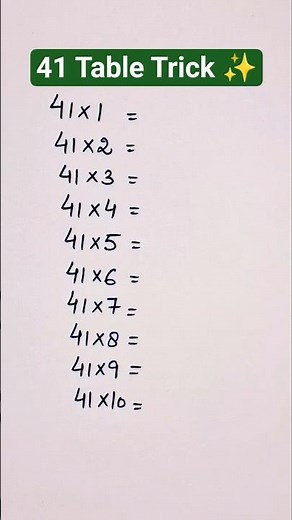 41 Table Trick ✨
41×1 =
41×2 =
41×3 =
41×4 =
41×5 =
41×6 =
41×7 =
41×8 =
41×9 =
41×10 =